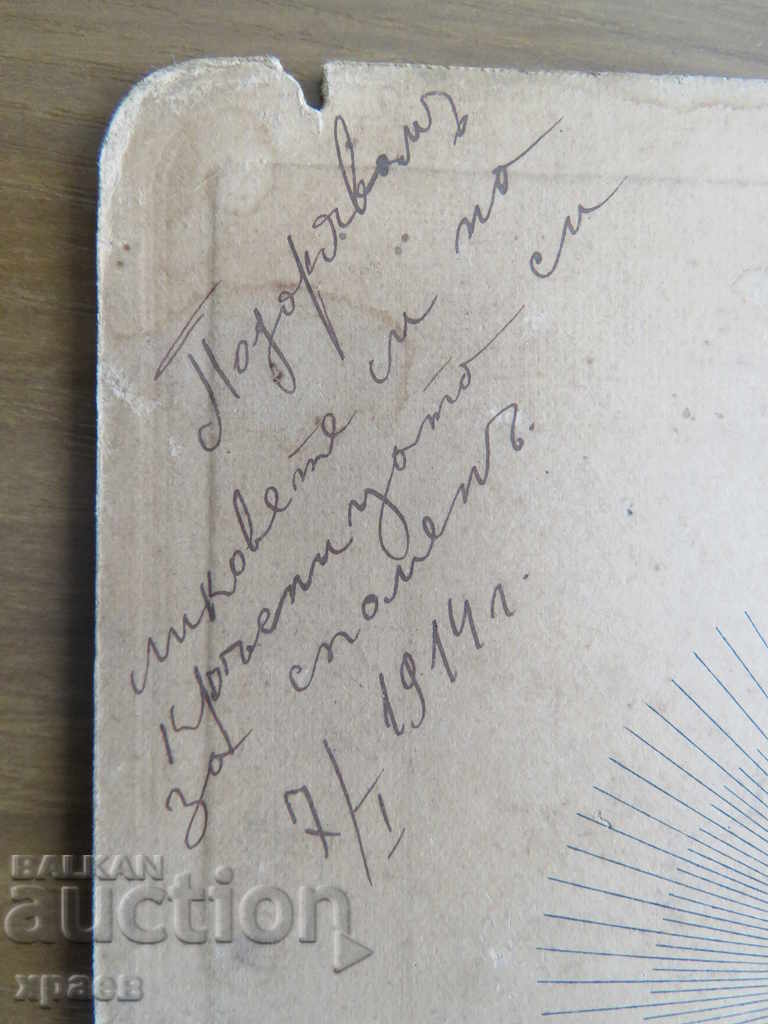 Подорявамъ
ликовете си по
кръсницата си
за споменъ.
7/I 1914 г.
BALKAN
auction
храев